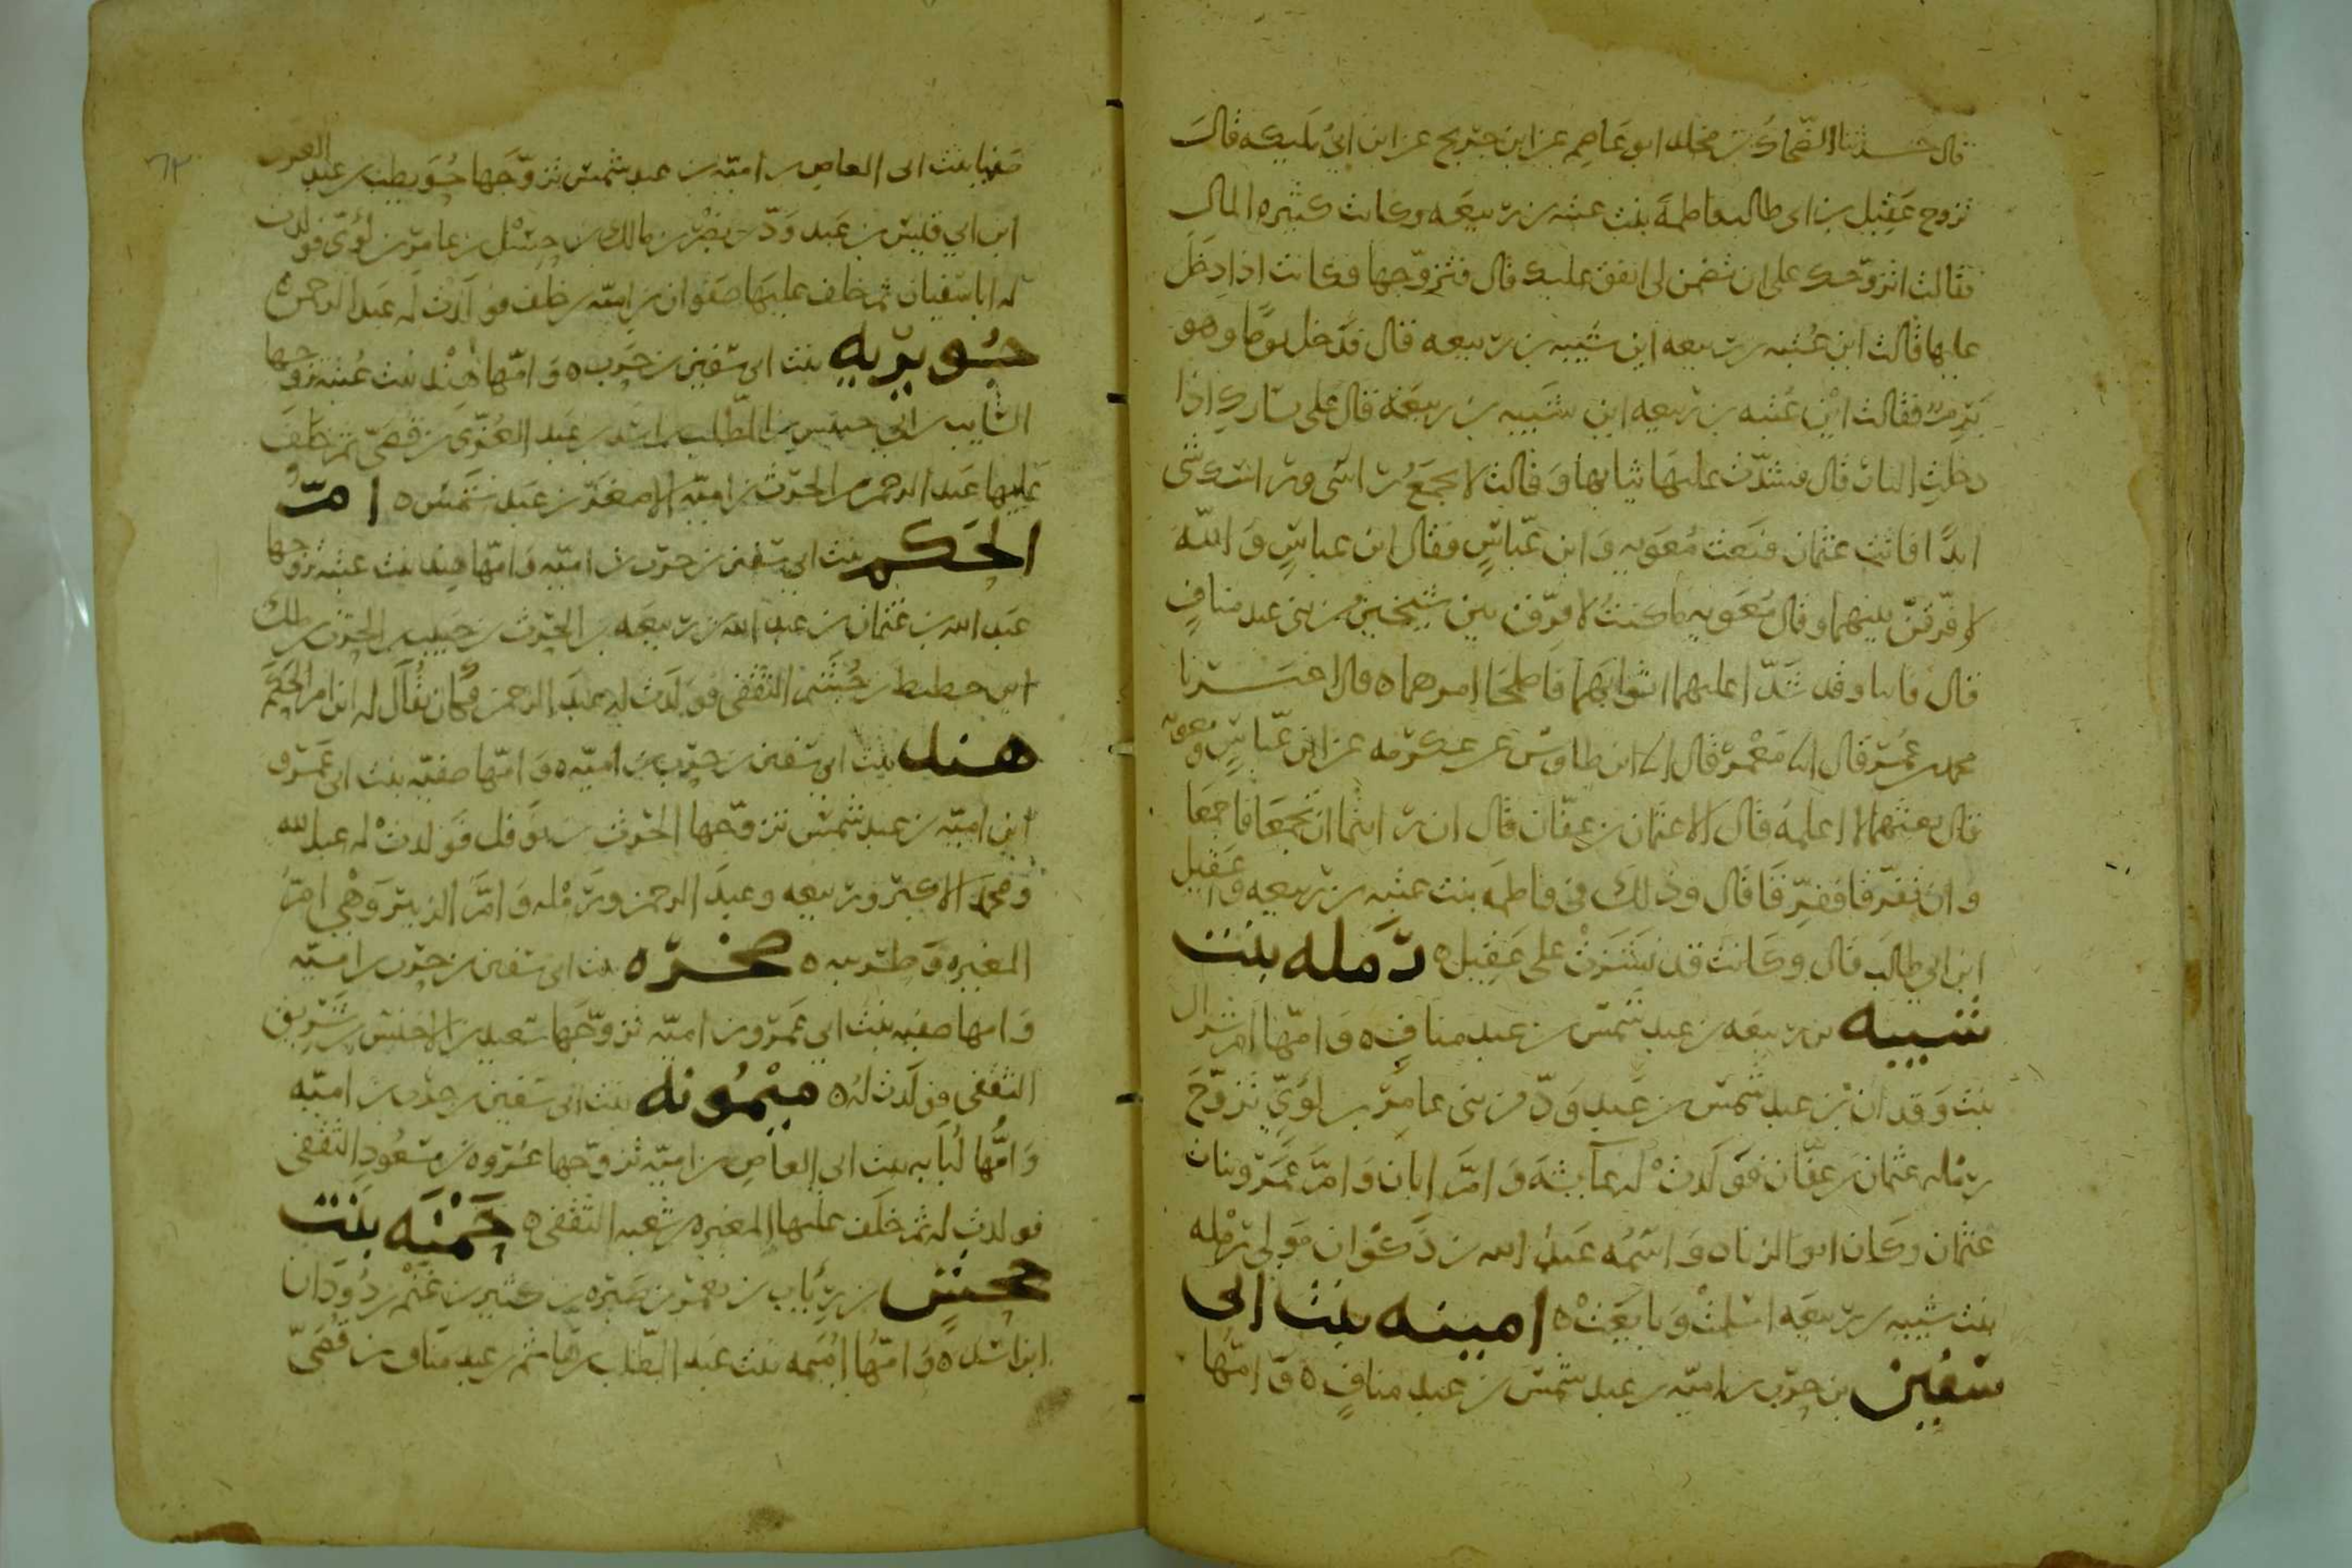 قال حدثنا الضحاك بن مخلد ابو عاصم عن ابن جريج عن ابن ابي مليكه قال
تزوج عقيل بن ابي طالب فاطمة بنت عتبه بن ربيعه وكانت كثيره المال
فقالت اتزوجك على ان تضمن لي انفق عليك قال فتزوجها فكانت اذا دخل
عليها قالت اين عتبه بن ربيعه اين شيبه بن ربيعه قال فدخل يوما وهو
برم فقالت اين عتبه بن ربيعه اين شيبه بن ربيعه قال على يسارك اذا
دخلت النار قال فشدت عليها ثيابها وقالت لا يجمع راسي وراسك شي
ابدا فاتت عثمن فبعث معويه وابن عباس فقال ابن عباس والله
لافرقن بينهما وقال معويه ما كنت لافرق بين شيخين من بني عبد مناف
قال فاتيا وقد شدا عليهما اثوابهما فاصلحا امرهما ه قال اخبرنا
محمد بن عمر قال انا معمر قال انا ابن طاوس عن عكرمه عن ابن عباس ومعويه
قال بعثهما لا اعلمه قال الا عثمان بن عفان قال ان رايتما ان تجمعا فاجمعا
وان تفرقا ففرقا قال وذلك في فاطمه بنت عتبه بن ربيعه وعقيل
ابن ابي طالب قال وكانت قد نشزت على عقيل ه رمله بنت
شيبه بن ربيعه بن عبد شمس بن عبد مناف ه وامها ام شراك
بنت وقدان بن عبد شمس بن عبد ود من بني عامر بن لؤي تزوج
رمله عثمان بن عفان فولدت له عايشه وام ابان وام عمرو بنات
عثمان وكان ابو الزناد واسمه عبد الله بن ذكوان مولى رمله
بنت شيبه بن ربيعه اسلمت وبايعت ه امينه بنت ابي
سفين بن حرب بن اميه بن عبد شمس بن عبد مناف ه وامها
٦٣
صفيا بنت ابي العاص بن اميه بن عبد شمس تزوجها حويطب بن عبد العزى
ابن ابي قيس بن عبد ود بن نصر بن مالك بن حسل بن عامر بن لؤي فولدت
له ابا سفيان ثم خلف عليها صفوان بن اميه بن خلف فولدت له عبد الرحمن ه
جويريه بنت ابي سفين بن حرب ه وامها هند بنت عتبه تزوجها
السايب بن ابي حبيش بن المطلب بن اسد بن عبد العزى بن قصي ثم خلف
عليها عبد الرحمن بن الحرث بن اميه الاصغر بن عبد شمس ه ام
الحكم بنت ابي سفين بن حرب بن اميه وامها هند بنت عتبه تزوجها
عبد الله بن عثمان بن عبد الله بن ربيعه بن الحرث بن حبيب بن الحرث بن ملك
ابن حطيط بن جشم الثقفي فولدت له عبد الرحمن فكان يقال له ابن ام الحكم
هند بنت ابي سفين بن حرب بن اميه ه وامها صفيه بنت ابي عمرو
ابن اميه بن عبد شمس تزوجها الحرث بن نوفل فولدت له عبد الله
ومحمد الاكبر وربيعه وعبد الرحمن ورمله وام الزبير وهي ام
المغيره وظريبه ه صخره بنت ابي سفين بن حرب بن اميه
وامها صفيه بنت ابي عمرو بن اميه تزوجها سعيد بن الاخنس بن شريق
الثقفي فولدت له ه ميمونه بنت ابي سفين بن حرب بن اميه
وامها لبابه بنت ابي العاص بن اميه تزوجها عروه بن مسعود الثقفي
فولدت له ثم خلف عليها المغيره بن شعبه الثقفي ه حمنه بنت
جحش بن رئاب بن يعمر بن صبره بن كثير بن غنم بن دودان
ابن اسد ه وامها اميمه بنت عبد المطلب بن هاشم بن عبد مناف بن قصي